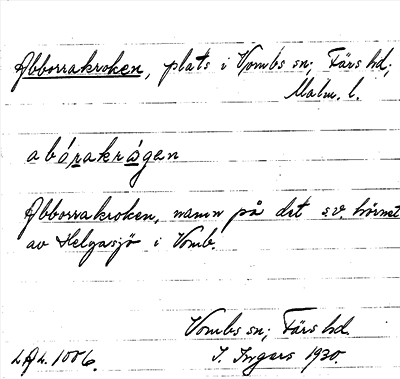 Abborrakroken, plats i Vombs sn; Färs hd;
Malm. l.
abårakrågen
Abborrakroken, namn på det s.v. hörnet
av Helgasjö i Vomb.
Vombs sn; Färs hd
L.A.L. 1006. I. Ingers 1930